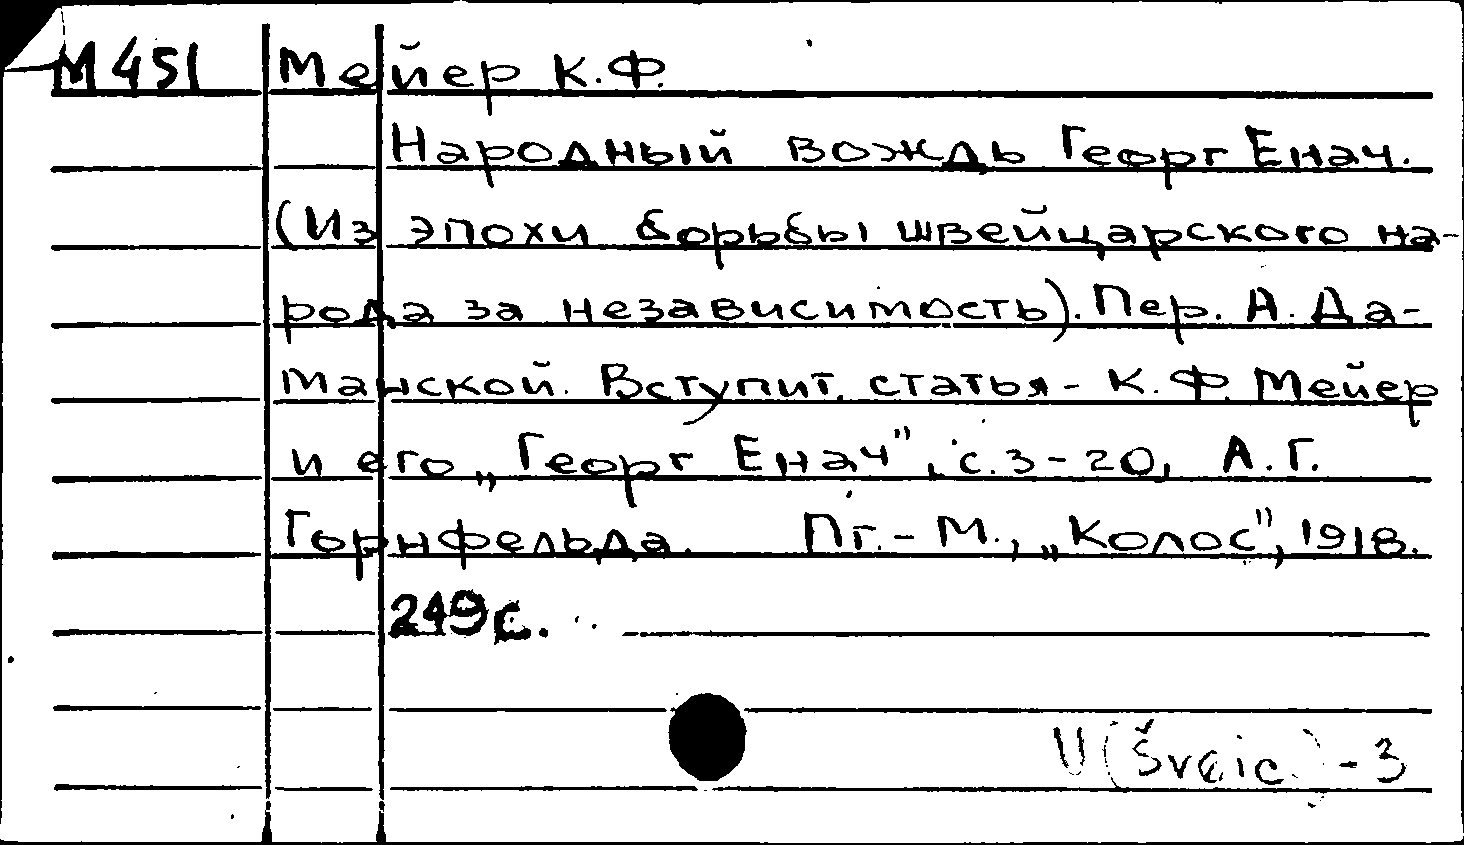 М451 Мейер К.Ф.
Народный вождь Георг Енач.
(Из эпохи борьбы швейцарского на-
рода за независимость). Пер. А. Да-
манской. Вступит. статья - К.Ф. Мейер
и его „Георг Енач", с. 3-20, А.Г.
Горнфельда. Пг.-М., „Колос", 1918.
249 с.
U (Šveic.) - 3